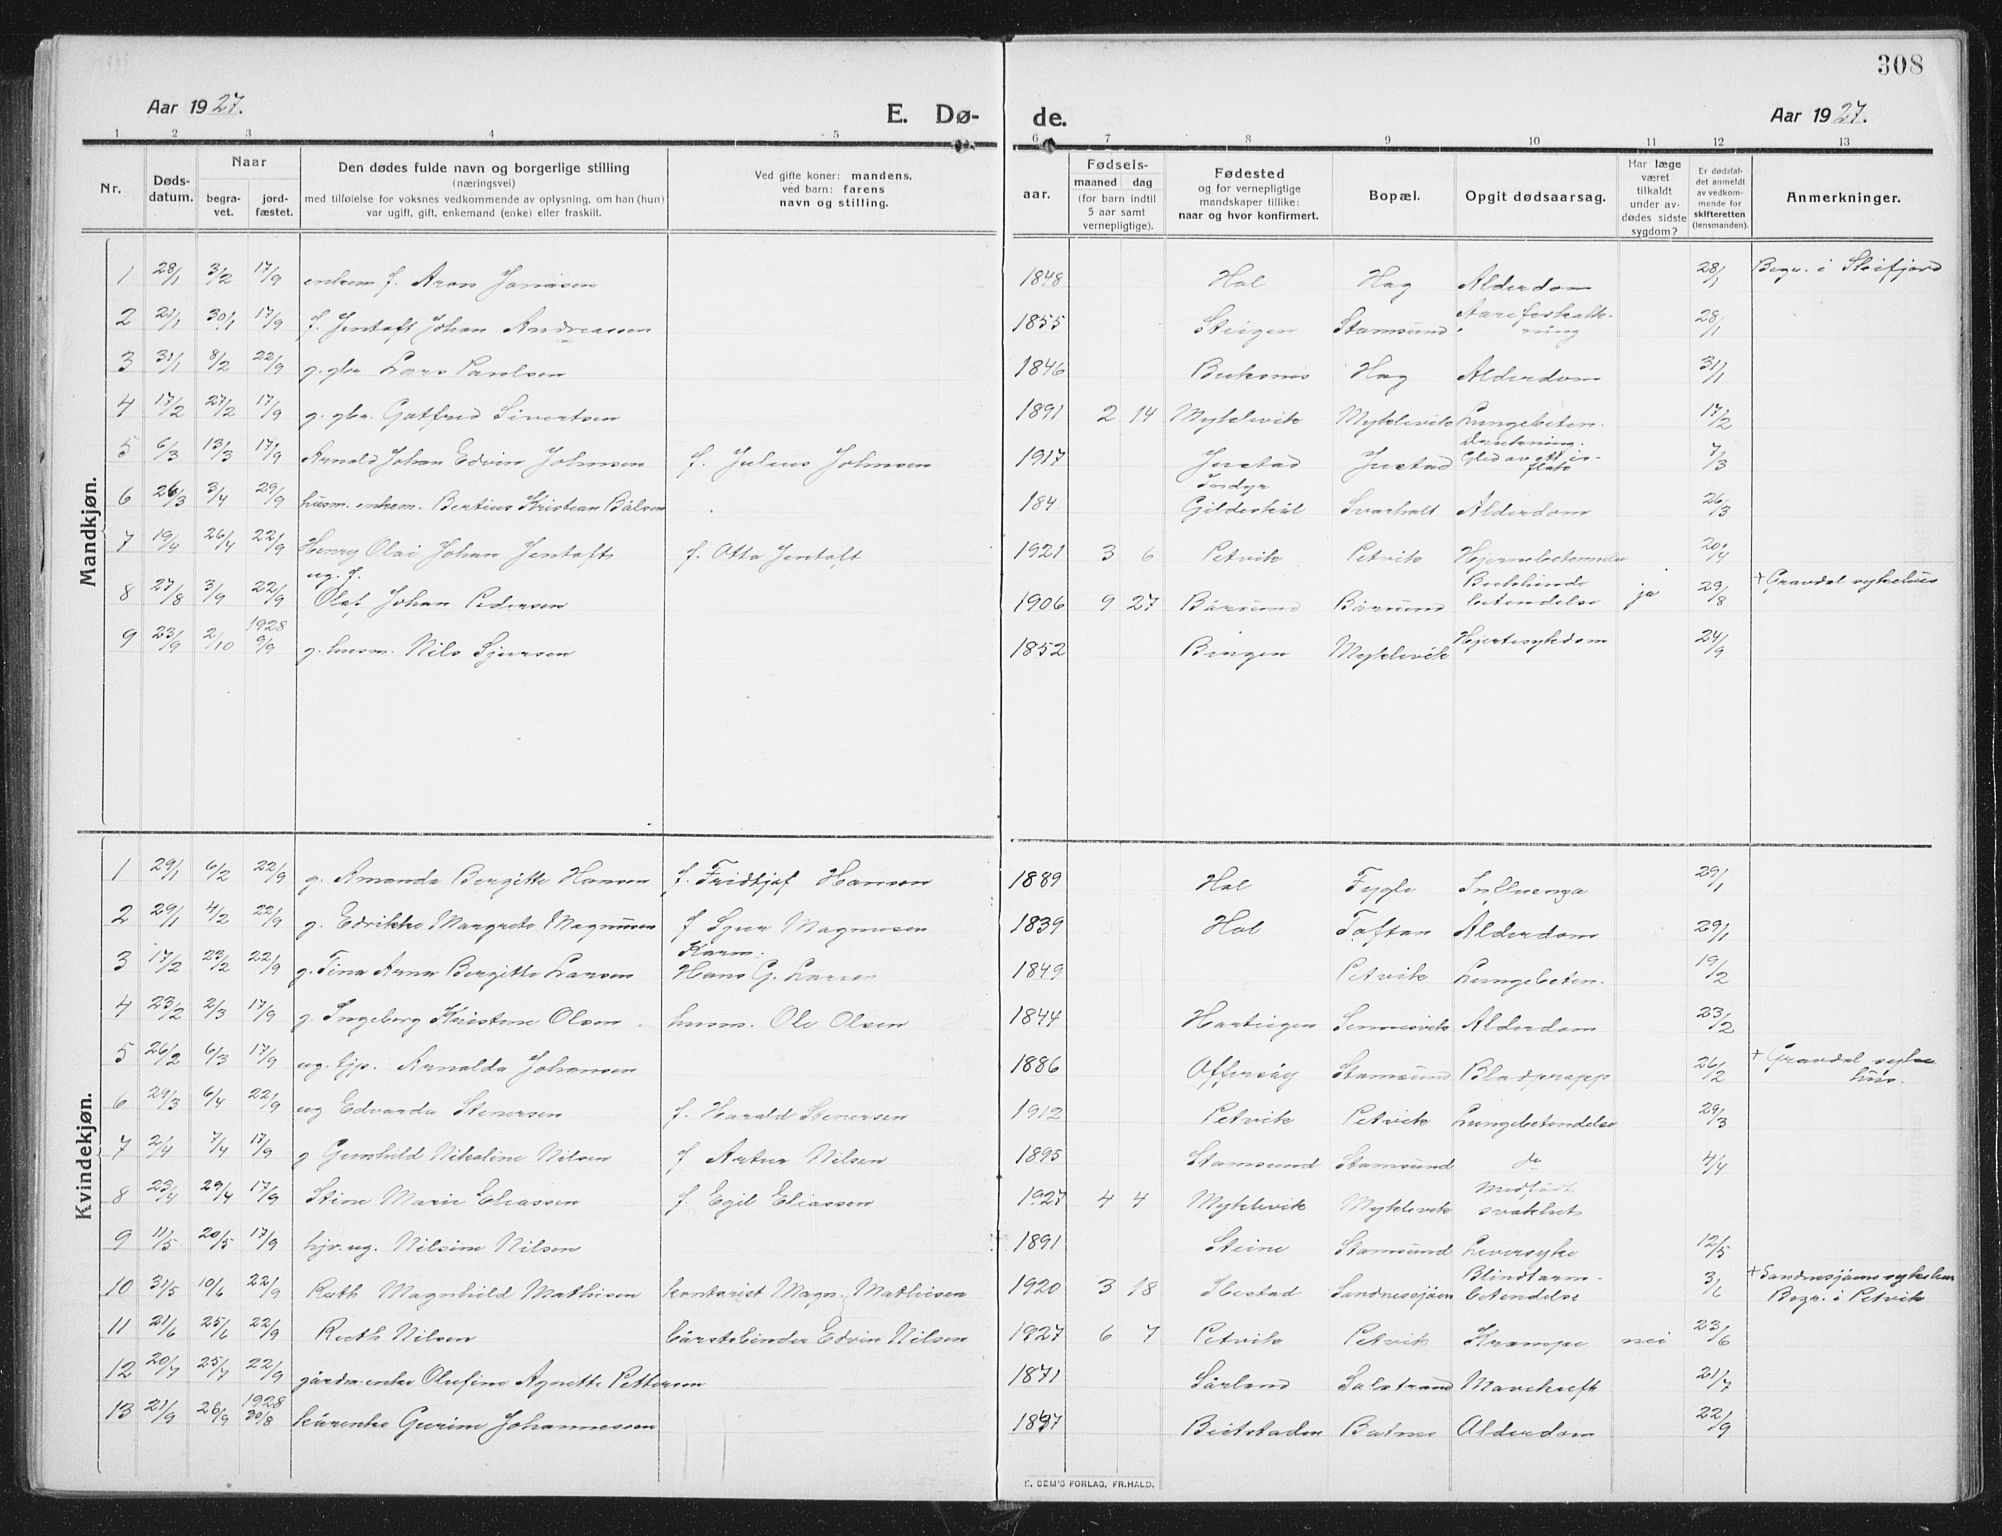 308
Aar 1927.
E. Dø-
de.
Aar 1927.
1 2 3 4 5 6 7 8 9 10 11 12 13
Nr.
Døds-
datum.
Naar
begra-
vet.
jord-
fæstet.
Den dødes fulde navn og borgerlige stilling
(næringsvei)
med tilføielse for voksnes vedkommende av oplysning, om han (hun)
var ugift, gift, enkemand (enke) eller fraskilt.
Ved gifte koner: mandens,
ved barn: farens
navn og stilling.
aar.
Fødsels-
maaned dag
(for barn indtil
5 aar samt
vernepligtige).
Fødested
og for vernepligtige
mandskaper tillike:
naar og hvor konfirmert.
Bopæl.
Opgit dødsaarsag.
Har læge
været
tilkaldt
under av-
dødes sidste
sygdom?
Er dødsfal-
det anmeldt
av vedkom-
mende for
skifteretten
(lensmanden).
Anmerkninger.
Mandkjøn.
1 28/1 3/2 17/9 enkem f. Aron Jonasen 1848 Hol Hag Alderdom 28/1 Begr. i Steifjord
2 21/1 30/1 17/9 f. Jentoft Johan Andreassen 1855 Steigen Stamsund Aareforkalk-
ning 28/1
3 31/1 8/2 22/9 g. gbr Lars Paulsen 1846 Buksnes Hag Alderdom 31/1
4 17/2 27/2 17/9 g. gbr. Gotfred Sivertsen 1891 2 14 Myklevik Myklevik Lungebeten. 17/2
5 6/3 13/3 17/9 Arnold Johan Edvin Johnsen f. Julius Johnsen 1917 Justad Justad Drukning.
Gled av ett is-
flak 7/3
6 26/3 3/4 29/9 husm. enkem. Bertius Kristian Bålsen 184 Indyr
Gildeskål Svarholt Alderdom 26/3
7 19/4 26/4 22/9 Henry Olai Johan Jentoft f. Otto Jentoft 1921 3 6 Petvik Petvik Hjernebetendelse 20/4
8 27/8 3/9 22/9 ug. f.
Olaf Johan Pedersen 1906 9 27 Børsund Børsund Bukhinde
betendelse ja 29/8 + Gravdal sykehus
9 23/9 2/10 1928
9/9 g. husm. Nils Sjursen 1852 Bingen Myklevik Hjertesykdom 24/9
Kvindekjøn.
1 29/1 6/2 22/9 g. Amanda Bergitte Hansen f. Fridtjof Hanson 1889 Hol Fygle Influenza 29/1
2 29/1 4/2 22/9 g. Edrikke Margrete Magnusen f Sjur Magnusen 1839 Hol Toftan Alderdom 29/1
3 17/2 23/2 22/9 g. Tina Arna Bergitte Larsen Karm.
Hans G. Larsen 1849 Petvik Lungebeten. 19/2
4 23/2 2/3 17/9 g. Ingeborg Kristene Olsen husm. Ole Olsen 1844 Hartvigen Sennesvik Alderdom 23/2
5 26/2 6/3 17/9 ug. tjp. Arnolda Johansen 1886 Offersøy Stamsund Blodpropp 26/2 + Gravdal syke
hus.
6 29/3 6/4 22/9 ug Edvarda Stenersen f. Harald Stenersen 1912 Petvik Petvik Lungebetendelse 29/3
7 2/4 7/4 17/9 g Gunhild Nikoline Nilsen f Artur Nilsen 1895 Stamsund Stamsund do 4/4
8 23/4 29/4 17/9 Stine Marie Eliassen f Egil Eliassen 1927 4 4 Myklevik Myklevik Medfødt
svakhet
9 11/5 20/5 17/9 hjv. ug. Nilsine Nilsen 1891 Steine Stamsund Leversyke 12/5
10 31/5 10/6 22/9 Ruth Magnhild Mathisen kontorist Magn. Mathisen 1920 3 18 Ibestad Sandnessjøen Blindtarm-
betendelse 3/6 + Sandnessjøens sykehus
Begr. i Petvik
11 21/6 25/6 22/9 Ruth Nilsen børstebinder Edvin Nilsen 1927 6 7 Petvik Petvik Krampe nei 23/6
12 20/7 25/7 22/9 gårdm. enke Olufine Agnette Pettersen 1871 Sørland Solstrand Mavekreft 21/7
13 21/9 26/9 1928
30/8 kårenke Gurine Johannessen 1847 Beitstaden Bøtnes Alderdom 22/9
E. SEM'S FORLAG, FR.HALD.